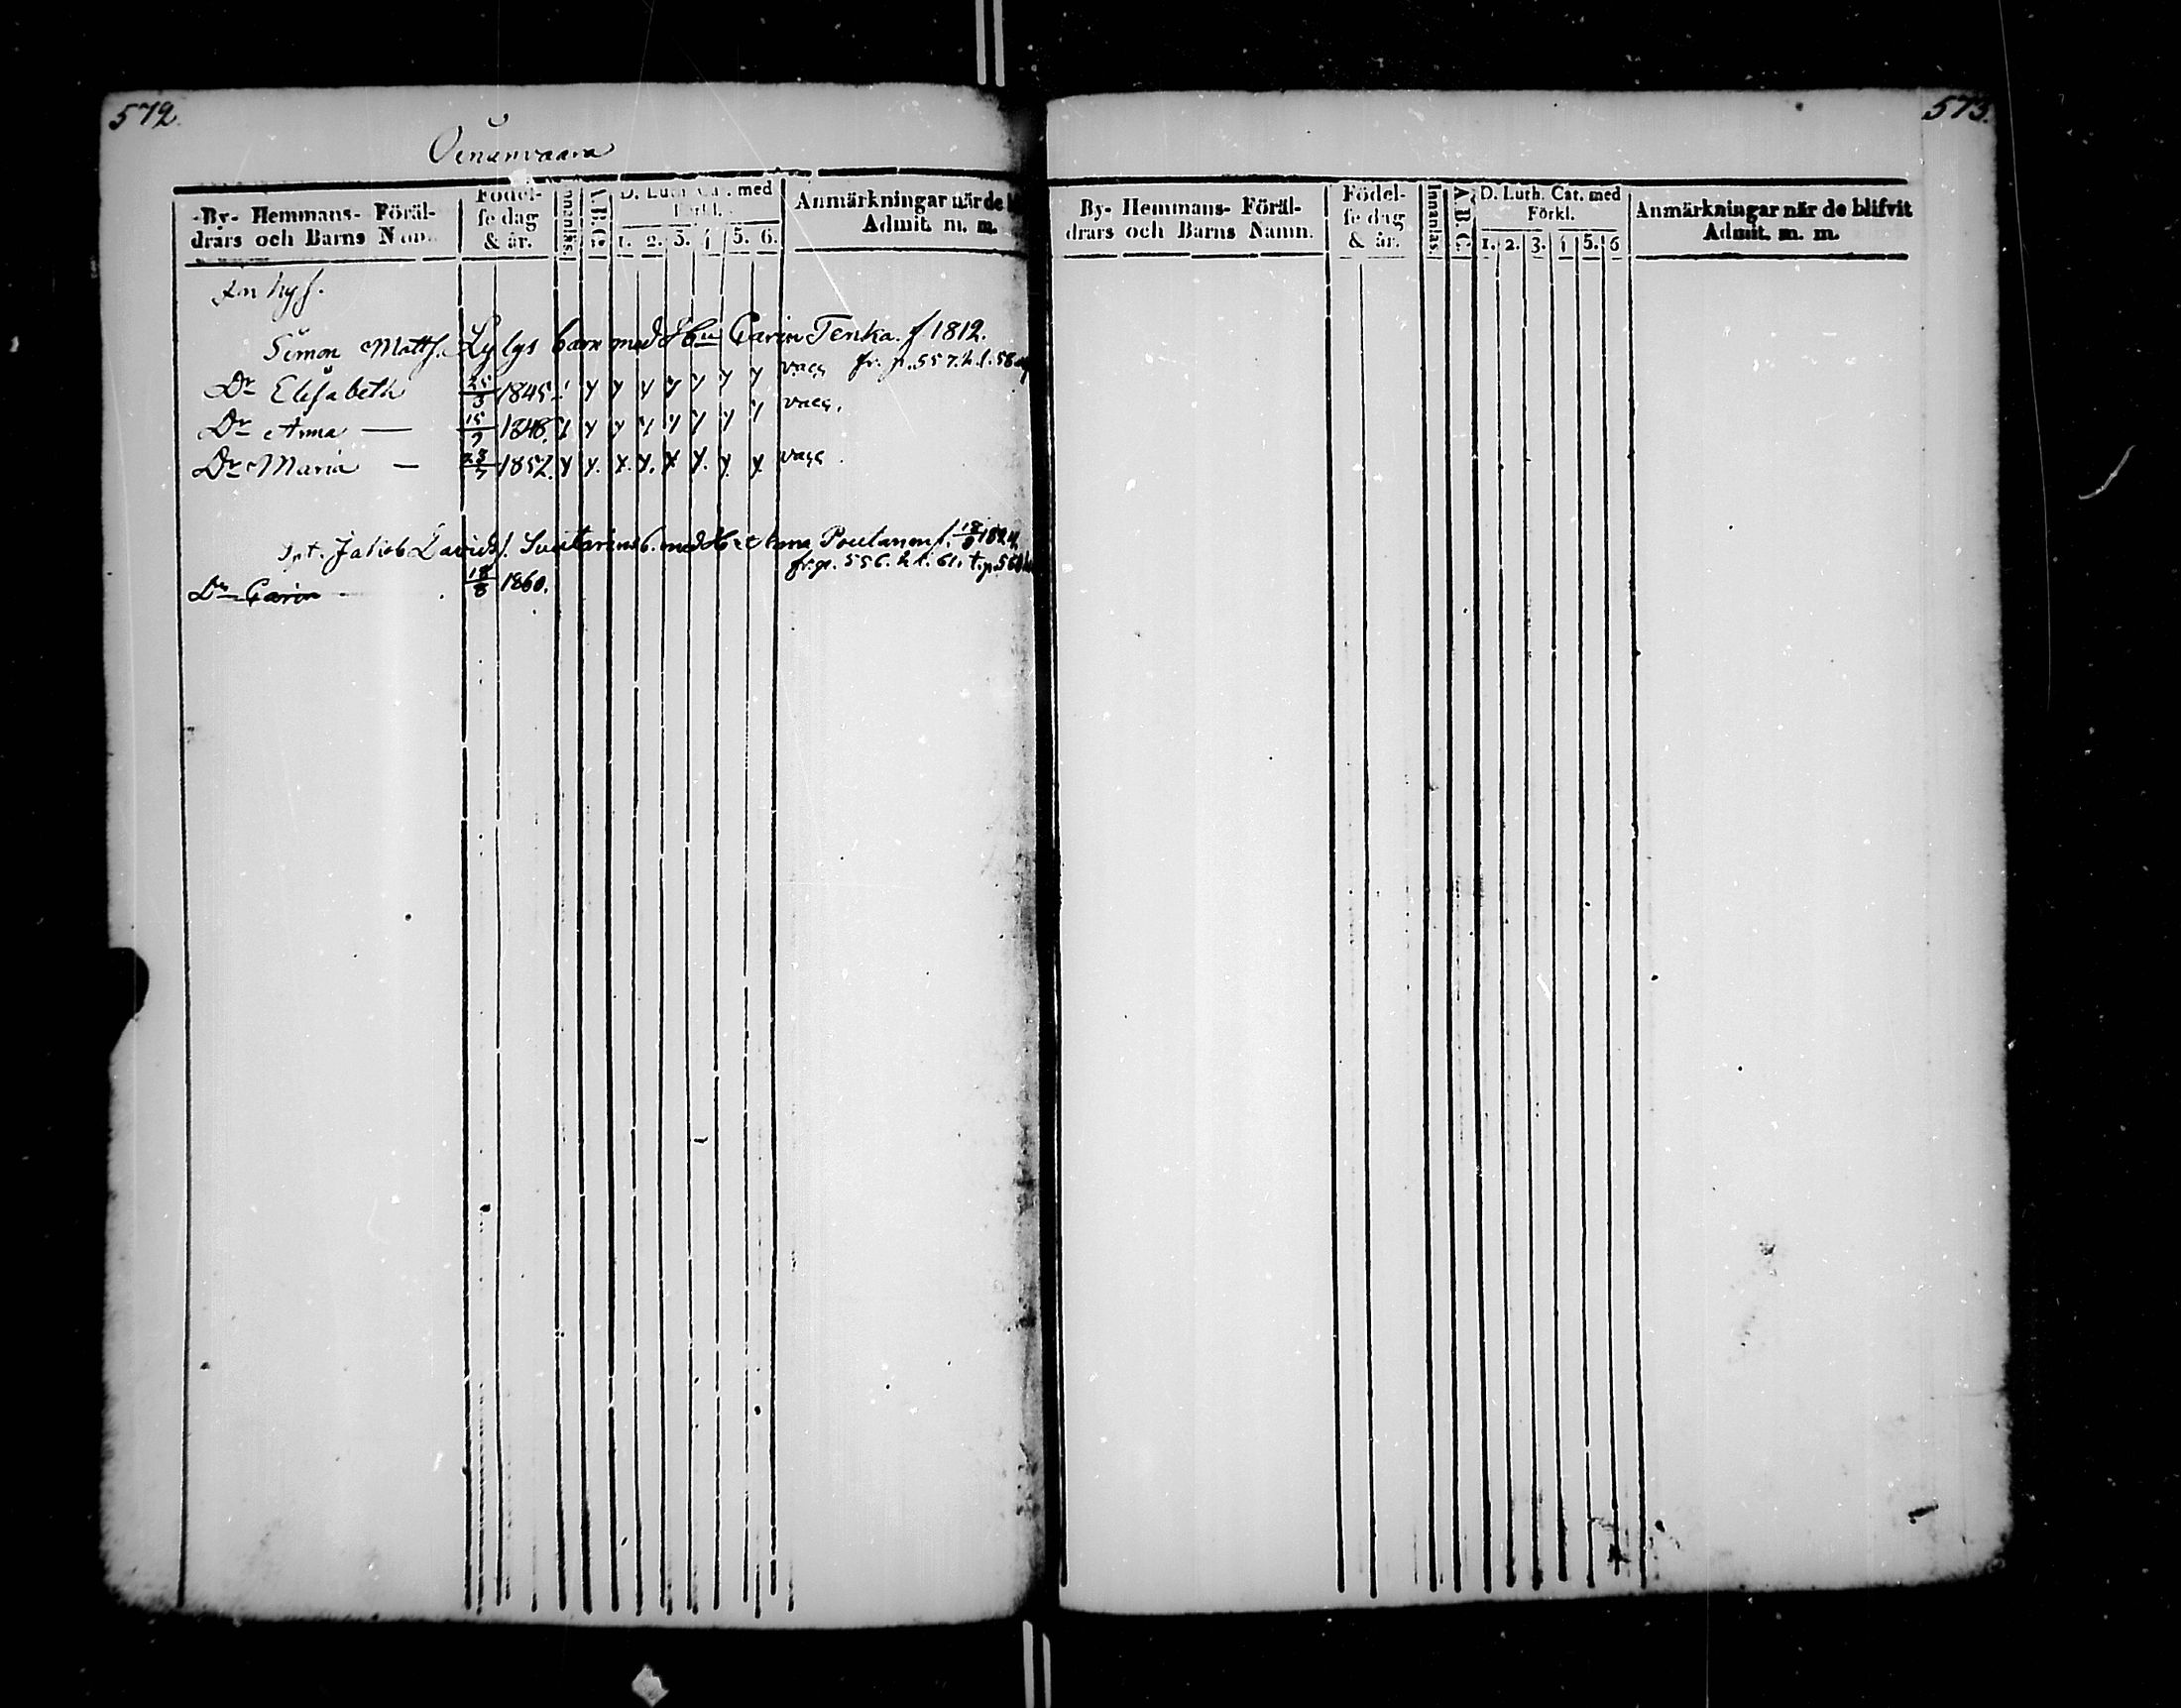 572.
Oinanvaara
By- Hemmans- Föräl-
drars och Barns Namn.
Födel-
se dag
& år.
Innanläs.
A.B.C.
D. Luth. Cat. med
Förkl.
1. 2. 3. 4 5. 6.
Anmärkningar när de
Admit. m. m.
Inhys.
Simon Matts. Lylys barn med Hu Carin Tenka. f 1812.
Dr Elisabeth 25/3 1845. vacc fr. p. 557. h. l. 58
Dr Anna — 15/9 1848. vacc.
Dr Maria — 23/7 1852. vacc
Jakob Davids s. b. med H Anna Poulanen f. 18/9 1824
fr. p. 556. h l. 61. t. p. 56
Dr Carin 18/8 1860.
573.
By- Hemmans- Föräl-
drars och Barns Namn.
Födel-
se dag
& år.
Innanläs.
A.B.C.
D. Luth. Cat. med
Förkl.
1. 2. 3. 4 5. 6
Anmärkningar når de blifvit
Admit. m. m.